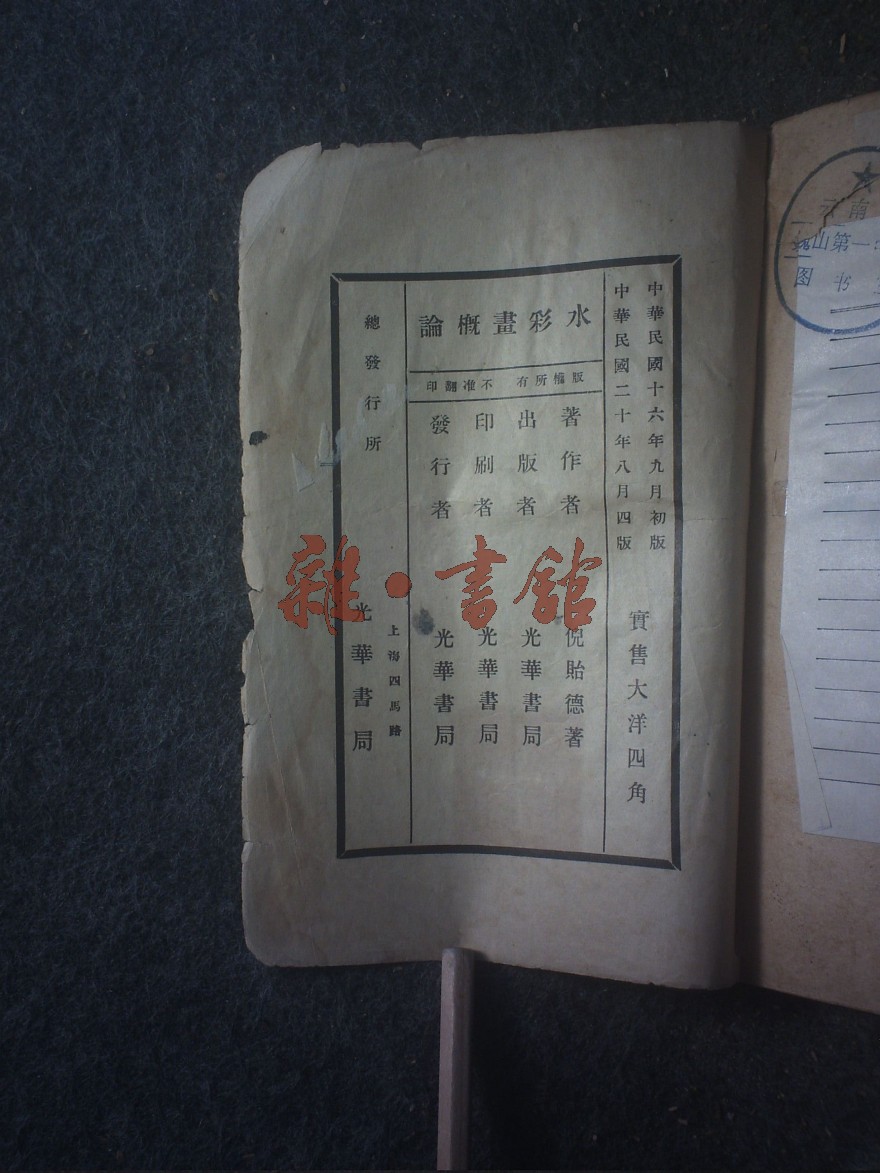 中華民國十六年九月初版
中華民國二十年八月四版
實售大洋四角
水彩畫概論
版權所有 不准翻印
著作者 倪貽德著
出版者 光華書局
印刷者 光華書局
發行者 光華書局
總發行所
上海四馬路
光華書局
雜·書館
云南
山第一
图书